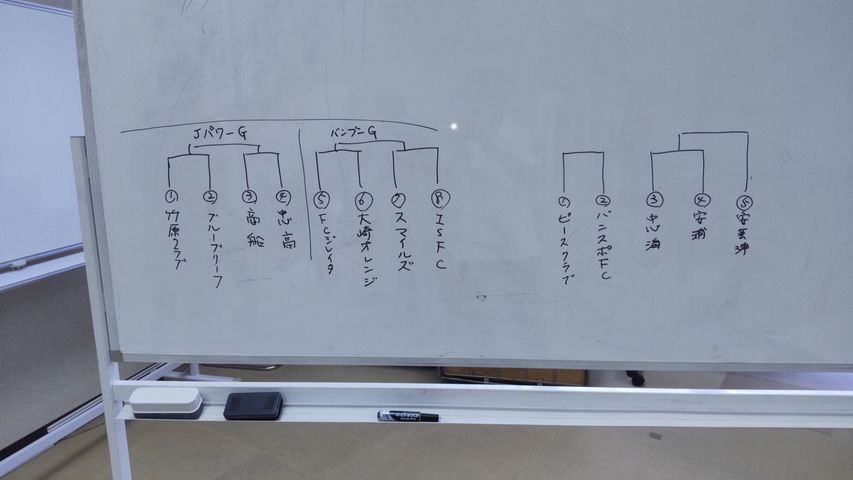 JパワーG
バンブーG
① 竹原クラブ
② ブルーブリーフ
③ 高船
④ 忠高
⑤ FCジレイタ
⑥ 大崎オレンジ
⑦ スマイルズ
⑧ ISFC
① ピースクラブ
② バンスポFC
③ 忠海
④ 安浦
⑤ 安芸津